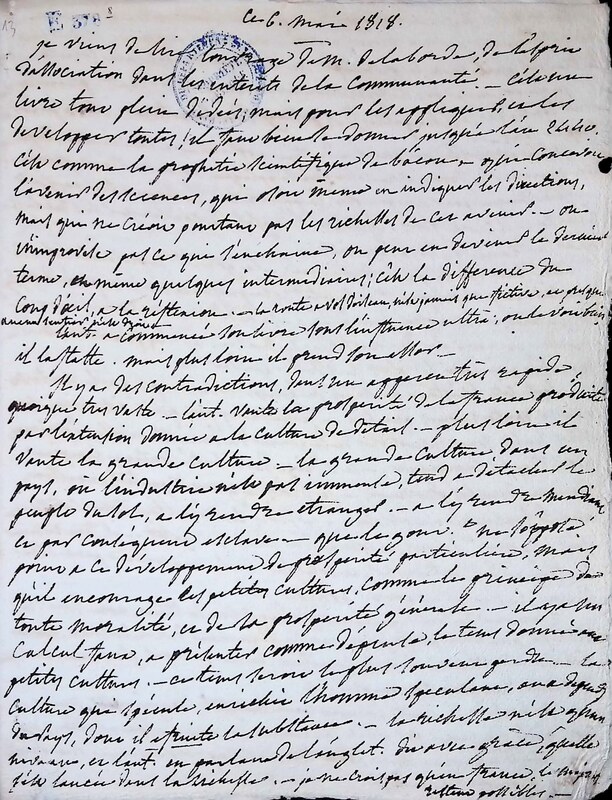 13
E 378 8
ce 6. mars 1818.
je viens de lire l'ouvrage de m. de laborde, de l'esprit
d'association dans les intérets de la Communauté. – c'est un
livre tout plein d'idées, mais pour les appliquer, et les
developper toutes, il faut bien se donner jusques à l'an 2440.
c'est comme la prophétie scientifique de bâcon,
l'avenir des sciences, qui osoit même en indiquer les directions,
mais qui ne créoit pourtant pas les richesses de cet avenir. – on
n'improvise pas ce qui s'enchaine, on peut en deviner le dernier
terme, et même quelques intermédiaires; c'est la difference du
Coup d'œil, a la réflexion. – la route a vol d'oiseau, n'est jamais que fictive, et presque
aucun sentier, n'est
l'aut. a commencé son livre sous l'influence ultra; on le voit bien
il la flatte. mais plus loin il prend son essor –
Il y a des contradictions, dans un apperçu très rapide,
quoique très vaste. – l'aut. vante la prosperité de la france produite
par l'extension donnée a la culture de détail. – plus loin il
vante la grande culture. – la grande culture dans un
pays, où l'industrie n'est pas immense, tend a détacher le
peuple du sol, a l'y rendre etranger. – a l'y rendre mendiant
et par conséquent esclave – que le gouv.t ne s'oppose
point a ce développement de prosperité particuliere, mais
qu'il encourage les petites cultures, comme le principe de
toute moralité, et de la prosperité générale. – il y a un
calcul faux, a présenter comme dépense, le tems donné aux
petites cultures. – ce tems seroit le plus souvent perdu. – la
culture que spécule, enrichit l'homme speculant, aux depens
du pays, dont il la substance. – la richesse n'est qu'un
niveau, et l'aut. en parlant de l'anglet. dit avec grâce, qu'elle
s'est lancée dans la richesse. – je ne crois pas qu'en france, le
possibles. –